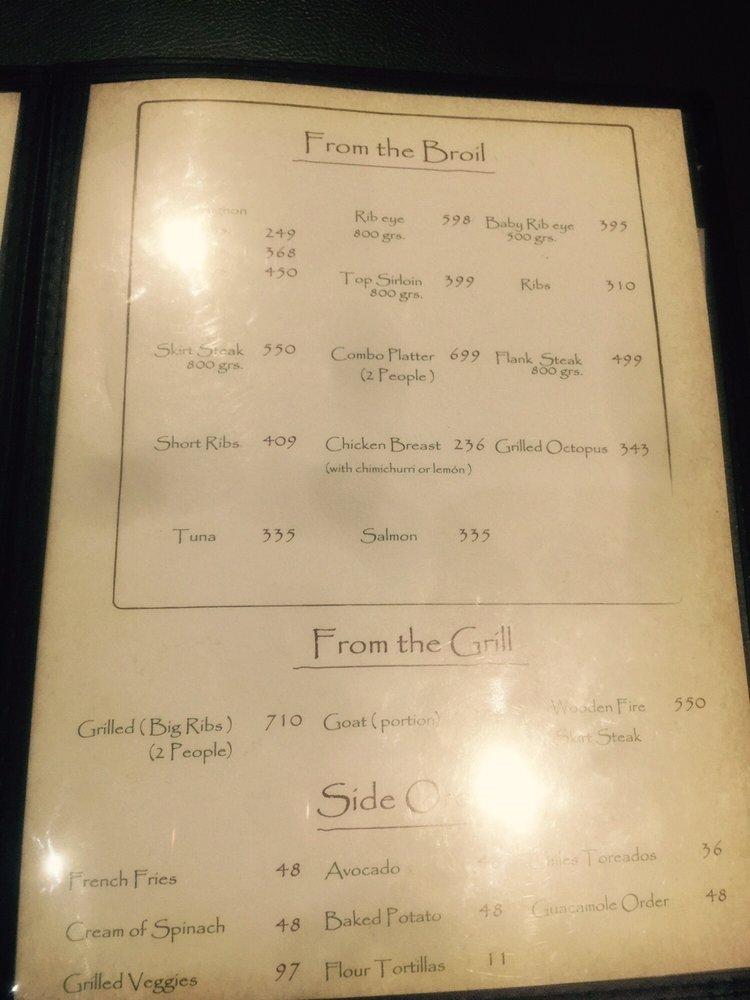 From the Broil
249
368
450
Rib eye 598
800 grs.
Baby Rib eye 395
500 grs.
Top Sirloin 399
800 grs.
Ribs 310
Skirt Steak 550
800 grs.
Combo Platter 699
(2 People)
Flank Steak 499
800 grs.
Short Ribs 409
Chicken Breast 236
(with chimichurri or lemón)
Grilled Octopus 343
Tuna 335
Salmon 335
From the Grill
Grilled (Big Ribs) 710
(2 People)
Goat (portion)
Wooden Fire 550
Skirt Steak
Side
French Fries 48
Avocado 48
Toreados 36
Cream of Spinach 48
Baked Potato 48
Guacamole Order 48
Grilled Veggies 97
Flour Tortillas 11